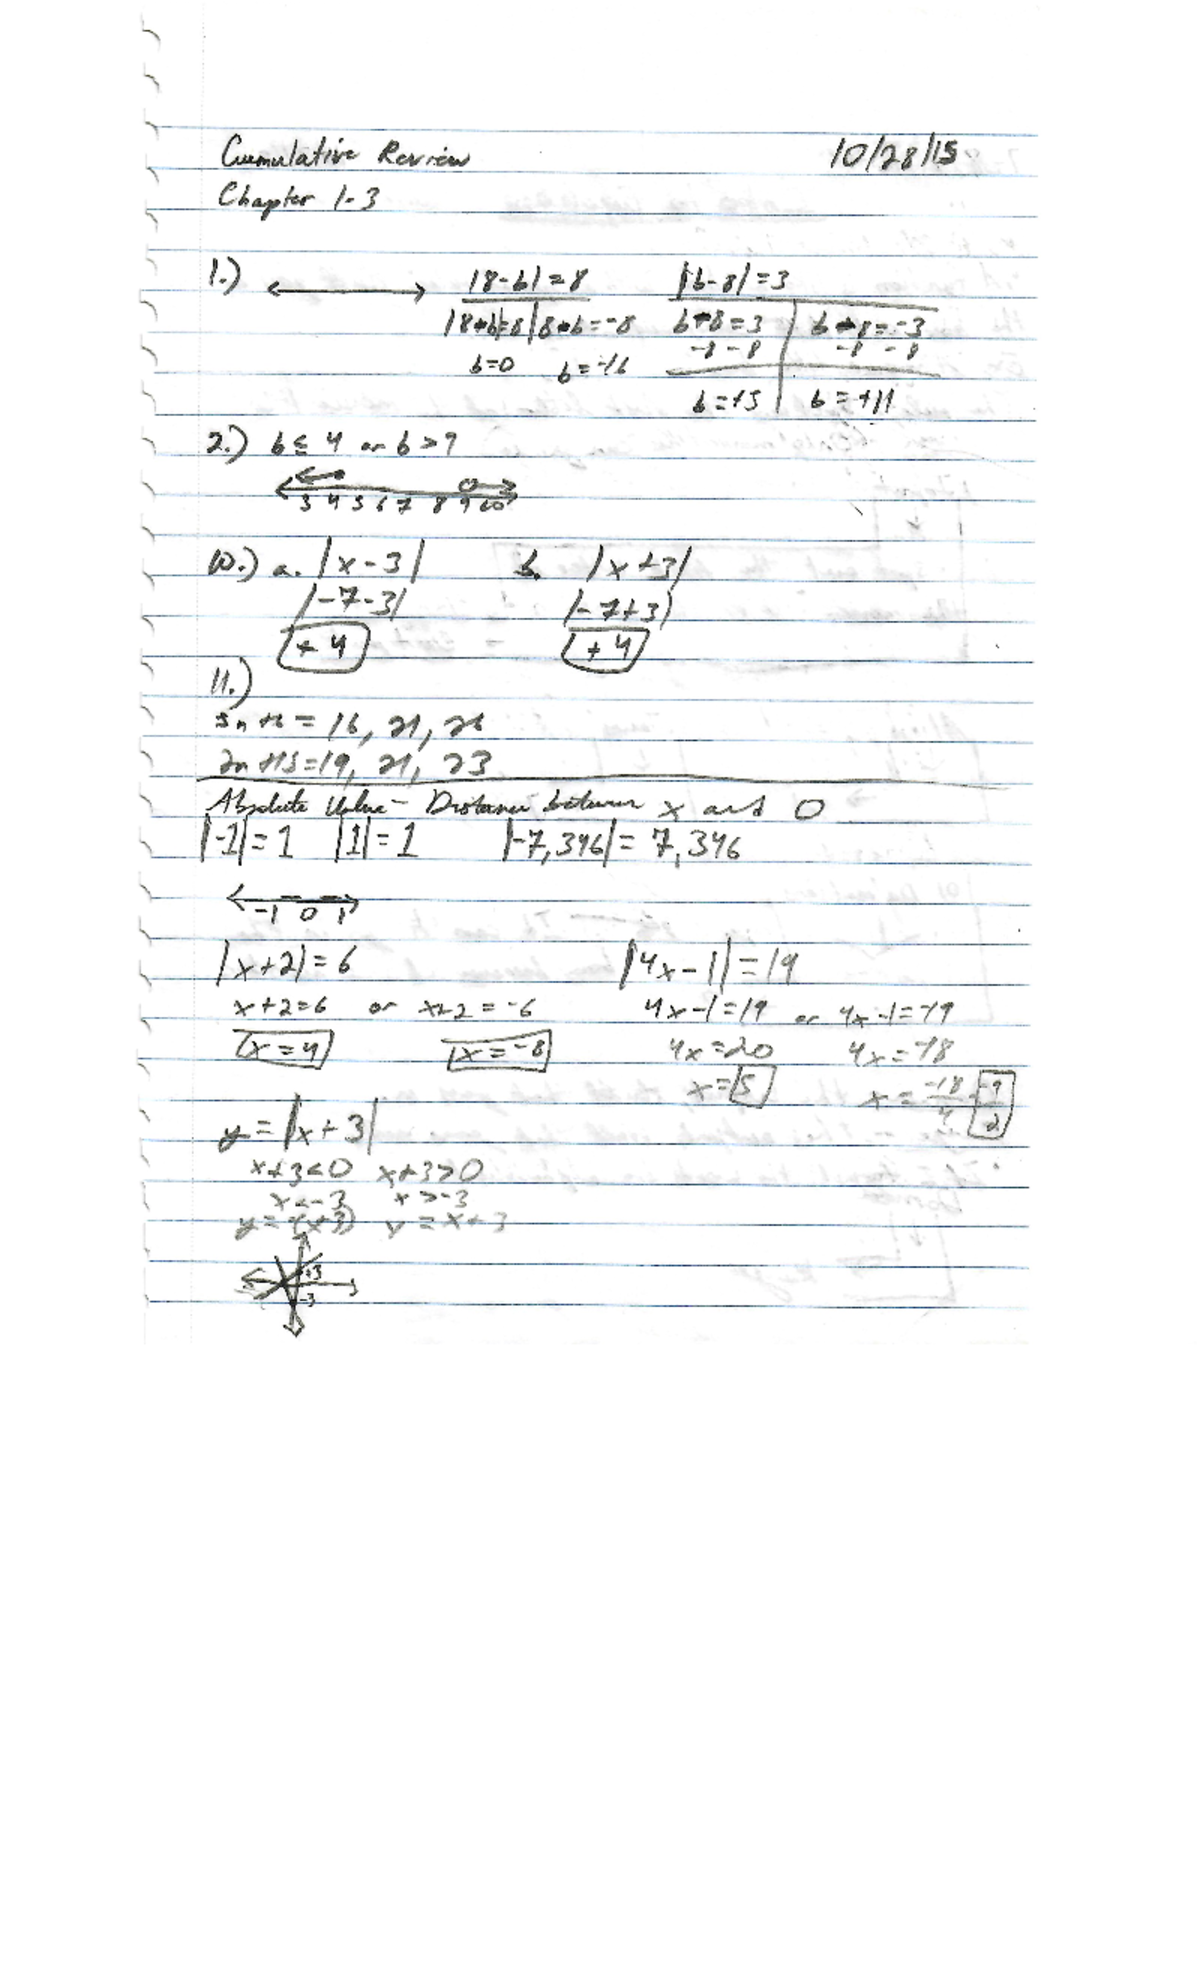 Cumulative Review 10/28/15
Chapter 1-3
1.) |8-b|=8 |b-8|=3
|8+b|=8 8+b=-8 b+8=3 b+8=-3
-8 -8 -8 -8
b=0 b=-16 b=+5 b=+11
2.) b≤4 or b>9
3 4 5 6 7 8 9 10
10.) a. |x-3| b. |x+3|
|-7-3| |-7+3|
+4 +4
11.)
5n+6=16, 21, 26
2n+15=19, 21, 23
Absolute Value - Distance between x and 0
|-1|=1 |1|=1 |-7,346|=7,346
-1 0 1
|x+2|=6 |4x-1|=19
x+2=6 or x+2=-6 4x-1=19 or 4x-1=-19
x=4 x=-8 4x=20 4x=-18
x=5 x=-18/4 -9/2
y=|x+3|
x+3<0 x+3>0
x<-3 x>-3
y=-(x+3) y=x+3
-3